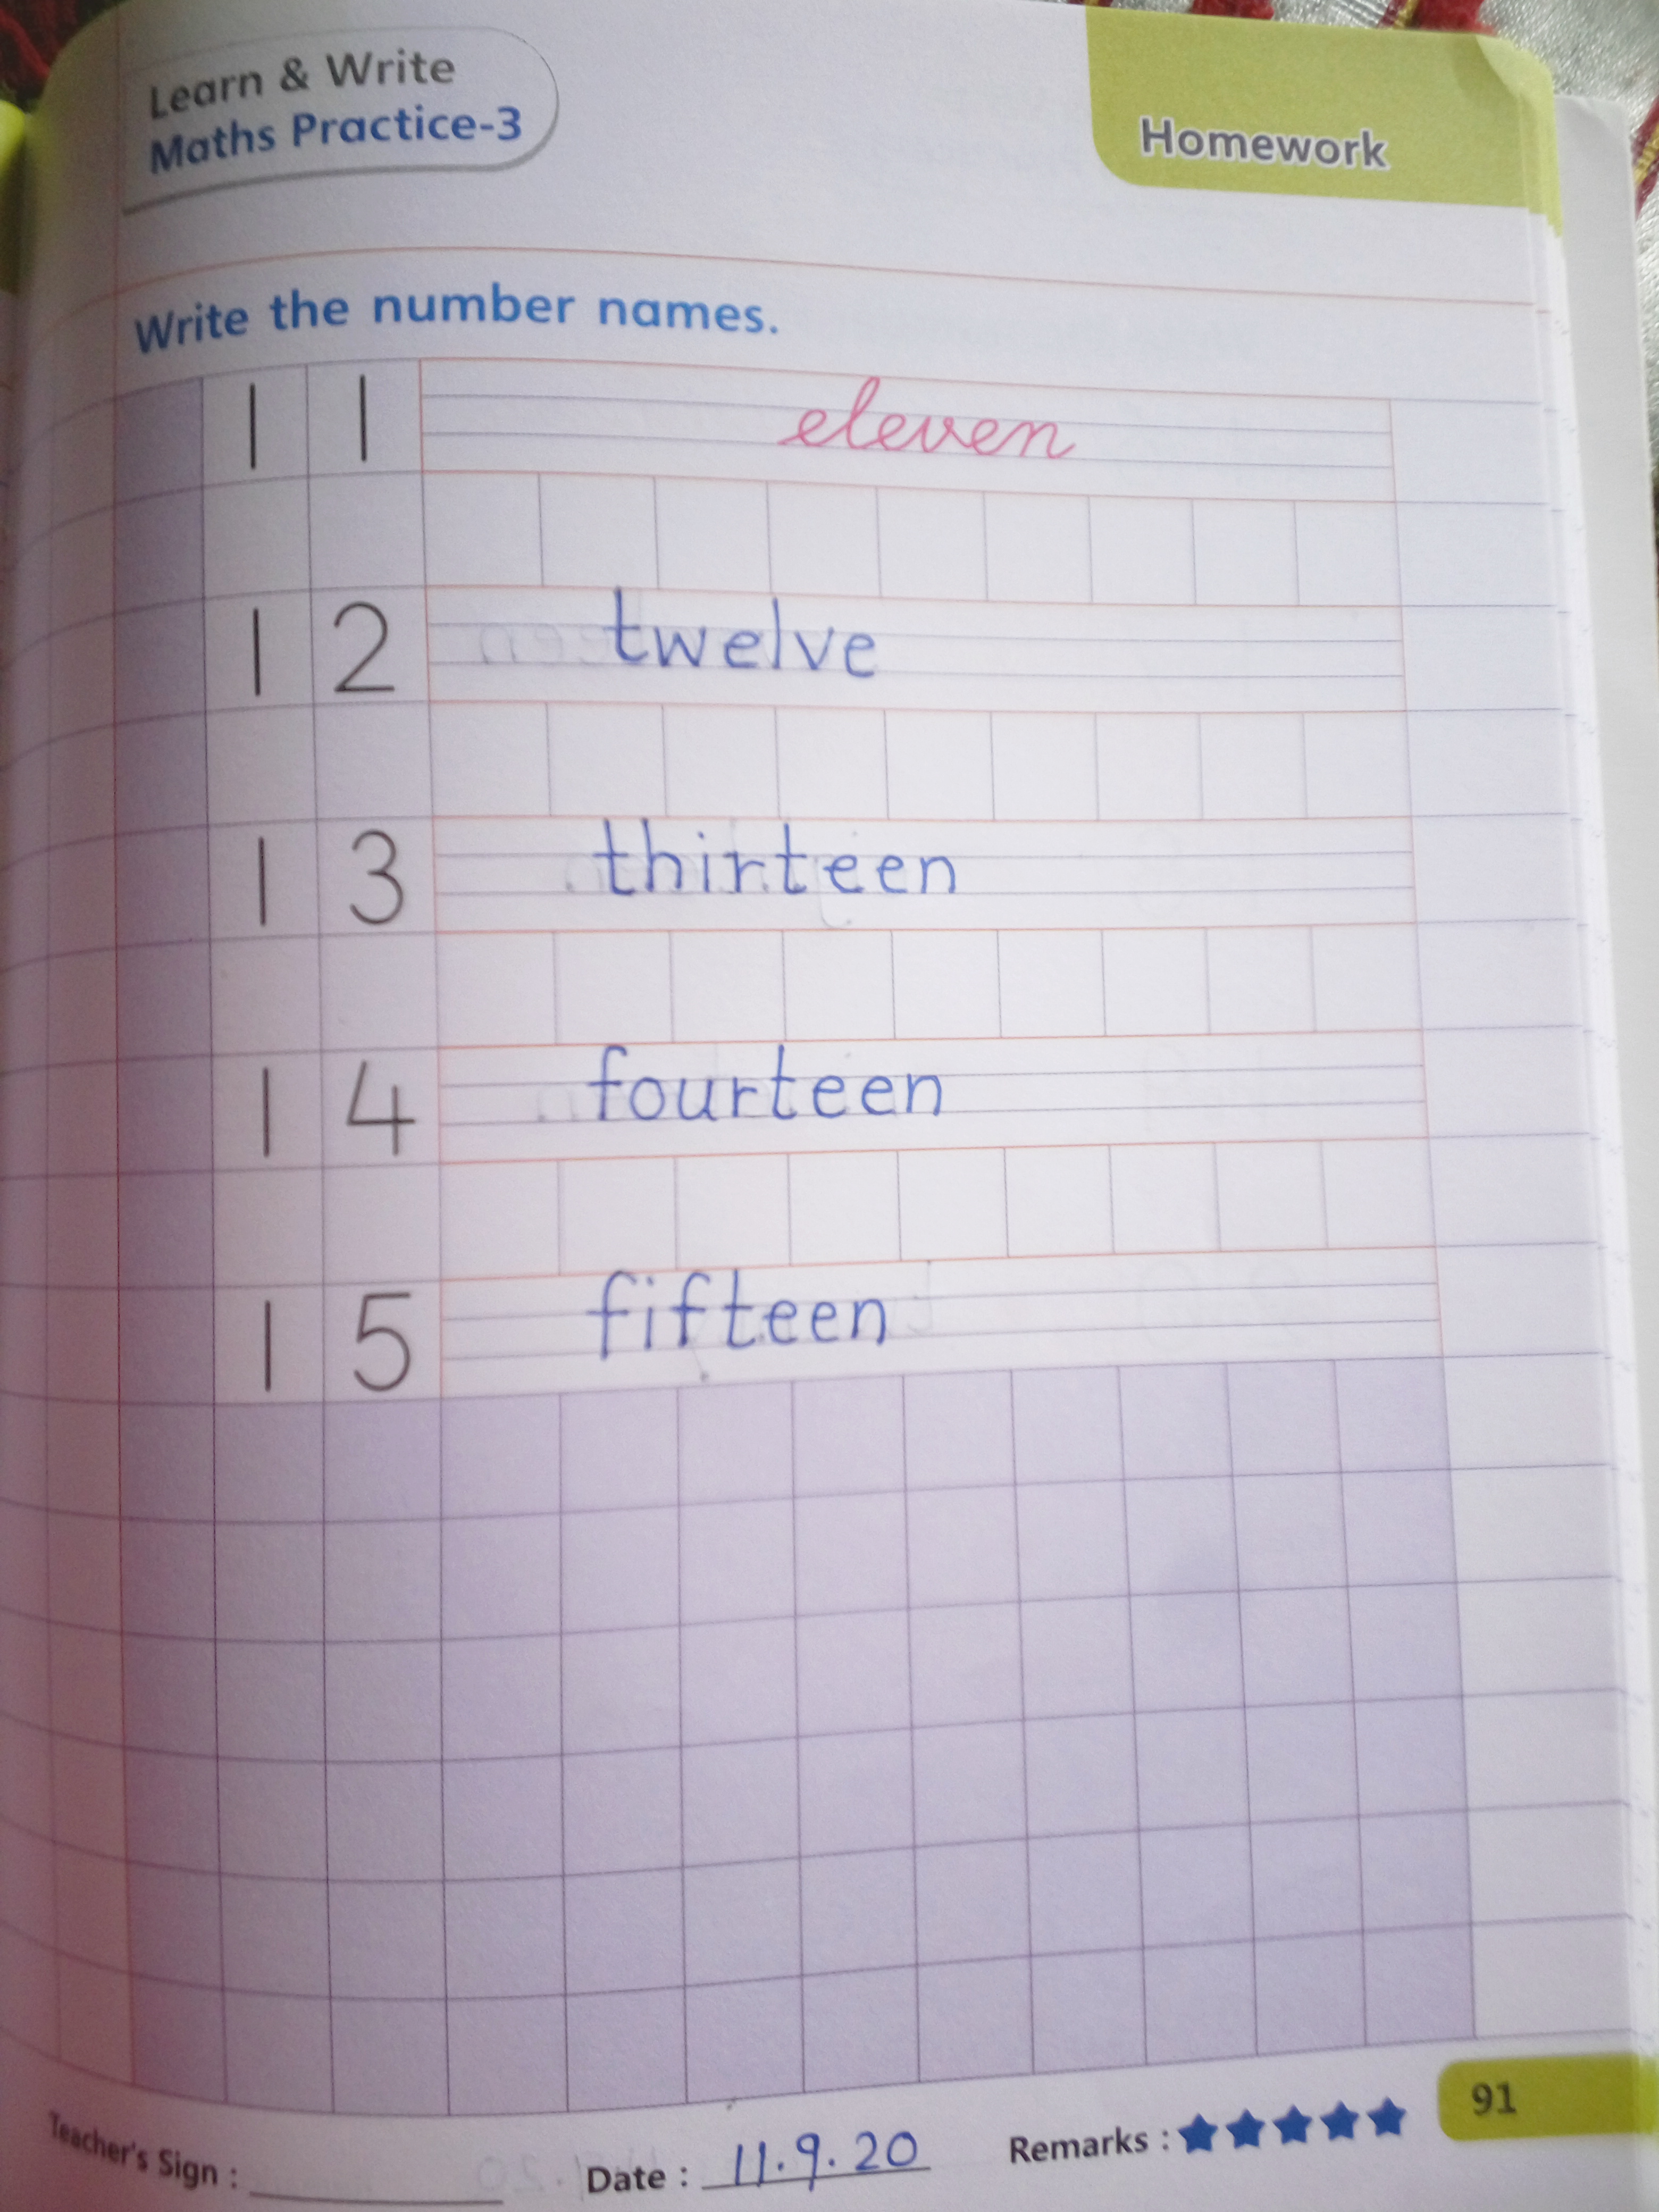 Learn & Write
Maths Practice-3
Homework
Write the number names.
11 eleven
12 twelve
13 thirteen
14 fourteen
15 fifteen
Teacher's Sign :
Date : 11.9.20
Remarks :
91